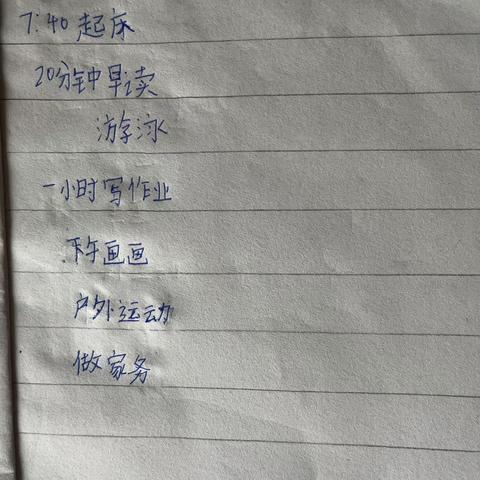 7:40起床
20分钟早读
游泳
一小时写作业
下午画画
户外运动
做家务